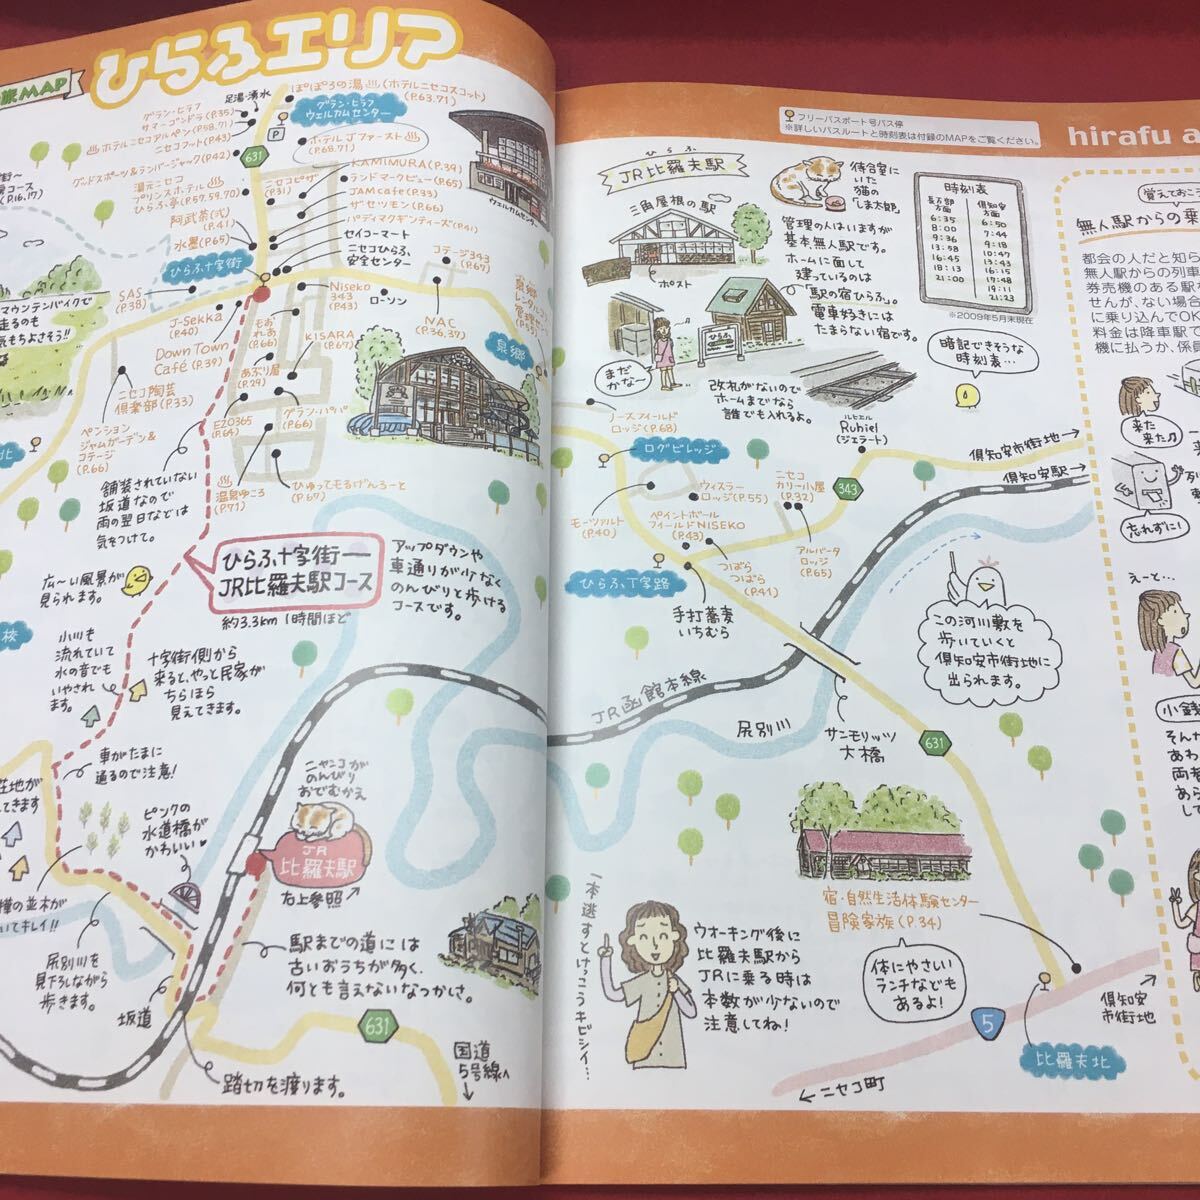 旅MAP
ひらふエリア
足湯・湧水
ぽぽろの湯♨(ホテルニセコスコット)
(P.63.71)
グラン・ヒラフ
サマーゴンドラ(P.35)
♨ホテルニセコアルペン(P.58.71)
ニセコフット(P.43)
グッドスポーツ&ランバージャック(P.42)
グラン・ヒラフ
ウェルカムセンター
P
ホテルJファースト♨
(P.68.71)
631
ウェルカムセンター
湯元ニセコ
プリンスホテル♨
ひらふ亭(P.57.59.70)
ニセコピザ
(P.31)
KAMIMURA(P.39)
ランドマークビュー(P.65)
JAMcafe(P.33)
ザ・セツモン(P.66)
パディマクギンティーズ(P.41)
阿武茶(弐)
(P.41)
水墨(P.65)
セイコーマート
ニセコひらふ、
安全センター
コテージ343
(P.67)
ひらふ十字街
SAS
(P.38)
Niseko
343
(P.43)
ローソン
NAC
(P.36,37)
泉郷
マウンテンバイクで
走るのも
気もちよさそう!!
J-Sekka
(P.40)
Down Town
Café(P.39)
(P.66)
KISARA
(P.67)
あぶり屋
(P.29)
グラン・パパ
(P.66)
ニセコ陶芸
倶楽部(P.33)
EZO365
(P.64)
ペンション
ジャムガーデン&
コテージ
(P.66)
♨
温泉ゆころ
(P.71)
ひゅってもるげんろーと
(P.67)
舗装されていない
坂道なので
雨の翌日などは
気をつけて。
ひらふ十字街―
JR比羅夫駅コース
約3.3km 1時間ほど
アップダウンや
車通りが少なく
のんびりと歩ける
コースです。
広〜い風景が
見られます。
小川も
流れていて
水の音でも
いやされ
ます。
十字街側から
来ると、やっと民家が
ちらほら
見えてきます。
車がたまに
通るので注意!
ピンクの
水道橋が
かわいい♥
ニャンコが
のんびり
おでむかえ
JR
比羅夫駅
右上参照↗
尻別川を
見下ろしながら
歩きます。
坂道
駅までの道には
古いおうちが多く、
何とも言えないなつかしさ。
631
国道
5号線へ
↓
踏切を渡ります。
フリーパスポート号バス停
※詳しいバスルートと時刻表は付録のMAPをご覧ください。
hirafu a
ひらふ
JR比羅夫駅
三角屋根の駅
ポスト
待合室に
いた
猫の
「しま太郎」
管理の人はいますが
基本無人駅です。
ホームに面して
建っているのは
「駅の宿ひらふ」。
電車好きには
たまらない宿です。
時刻表
長万部
方面
倶知安
方面
6:35 6:50
8:00 7:44
9:36 9:18
13:58 10:47
16:45 13:43
18:13 16:15
21:00 17:48
19:11
21:23
※2009年5月末現在
まだ
かな〜
改札がないので
ホームまでなら
誰でも入れるよ。
暗記できそうな
時刻表…
ノースフィールド
ロッジ(P.68)
ルヒエル
Ruhiel
(ジェラート)
ログビレッジ
倶知安市街地→
倶知安駅→
343
ウィスラー
ロッジ(P.55)
ニセコ
カリー小屋
(P.32)
モーツァルト
(P.40)
ペイントボール
フィールドNISEKO
(P.43)
ひらふ丁字路
つばら
つばら
(P.41)
アルバータ
ロッジ
(P.65)
手打蕎麦
いちむら
この河川敷を
歩いていくと
倶知安市街地に
出られます。
JR函館本線
尻別川
サンモリッツ
大橋
631
宿・自然生活体験センター
冒険家族(P.34)
体にやさしい
ランチなども
あるよ!
一本逃すとけっこうキビシイ…
ウォーキング後に
比羅夫駅から
JRに乗る時は
本数が少ないので
注意してね!
5
倶知安
市街地
比羅夫北
←ニセコ町
覚えておこ
無人駅からの乗
都会の人だと知ら
無人駅からの列車
券売機のある駅
せんが、ない場合
に乗り込んでOK
料金は降車駅で
機に払うか、係員
来た
来た♪
忘れずに!
えーと…
小銭
そんな
あわ
両替
あら
して